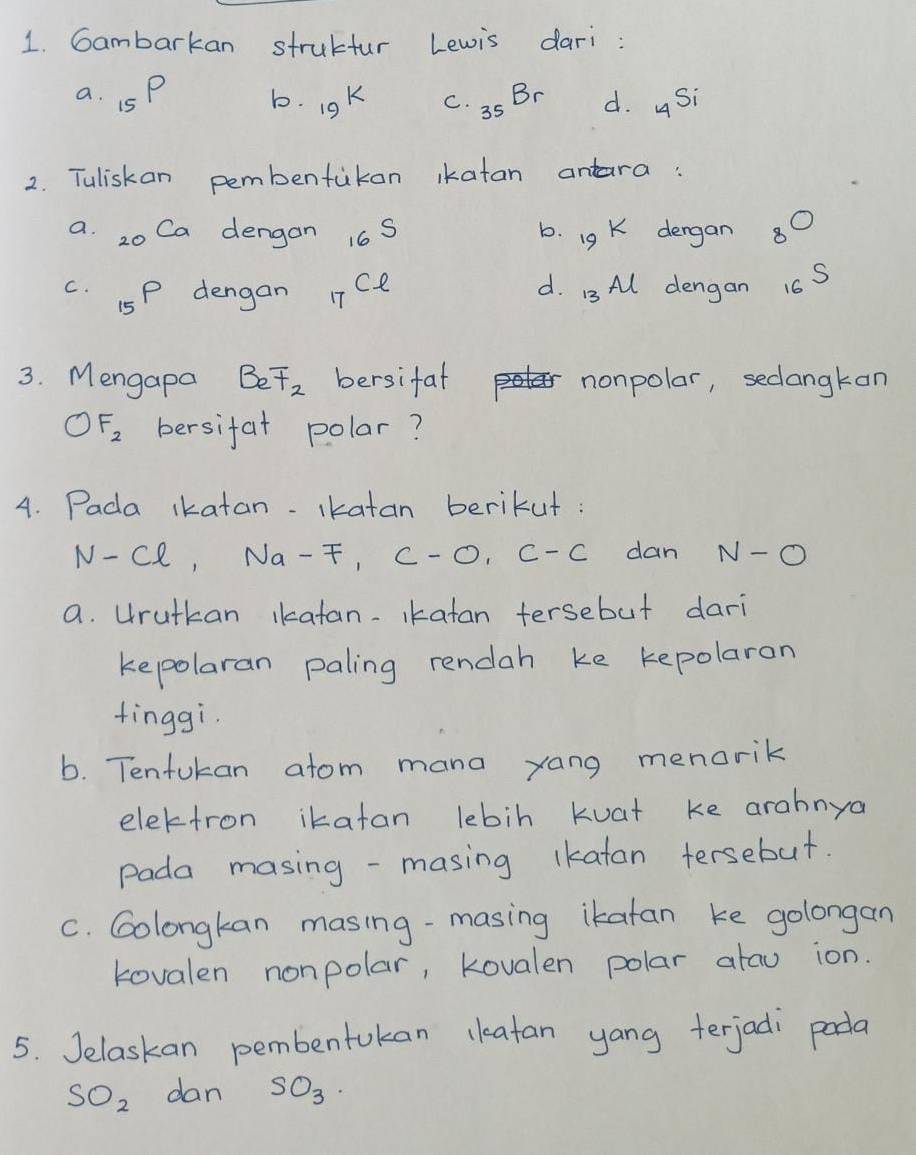 1. Gambarkan struktur Lewis dari :
a. ₁₅P b. ₁₉K c. ₃₅Br d. ₁₄Si
2. Tuliskan pembentukan ikatan antara :
a. ₂₀Ca dengan ₁₆S b. ₁₉K dengan ₈O
c. ₁₅P dengan ₁₇Cl d. ₁₃Al dengan ₁₆S
3. Mengapa BeF₂ bersifat polar nonpolar, sedangkan
OF₂ bersifat polar ?
4. Pada ikatan - ikatan berikut :
N - Cl, Na - F, C - O, C - C dan N - O
a. Urutkan ikatan - ikatan tersebut dari
kepolaran paling rendah ke kepolaran
tinggi.
b. Tentukan atom mana yang menarik
elektron ikatan lebih kuat ke arahnya
pada masing - masing ikatan tersebut.
c. Golongkan masing - masing ikatan ke golongan
kovalen nonpolar, kovalen polar atau ion.
5. Jelaskan pembentukan ikatan yang terjadi pada
SO₂ dan SO₃.